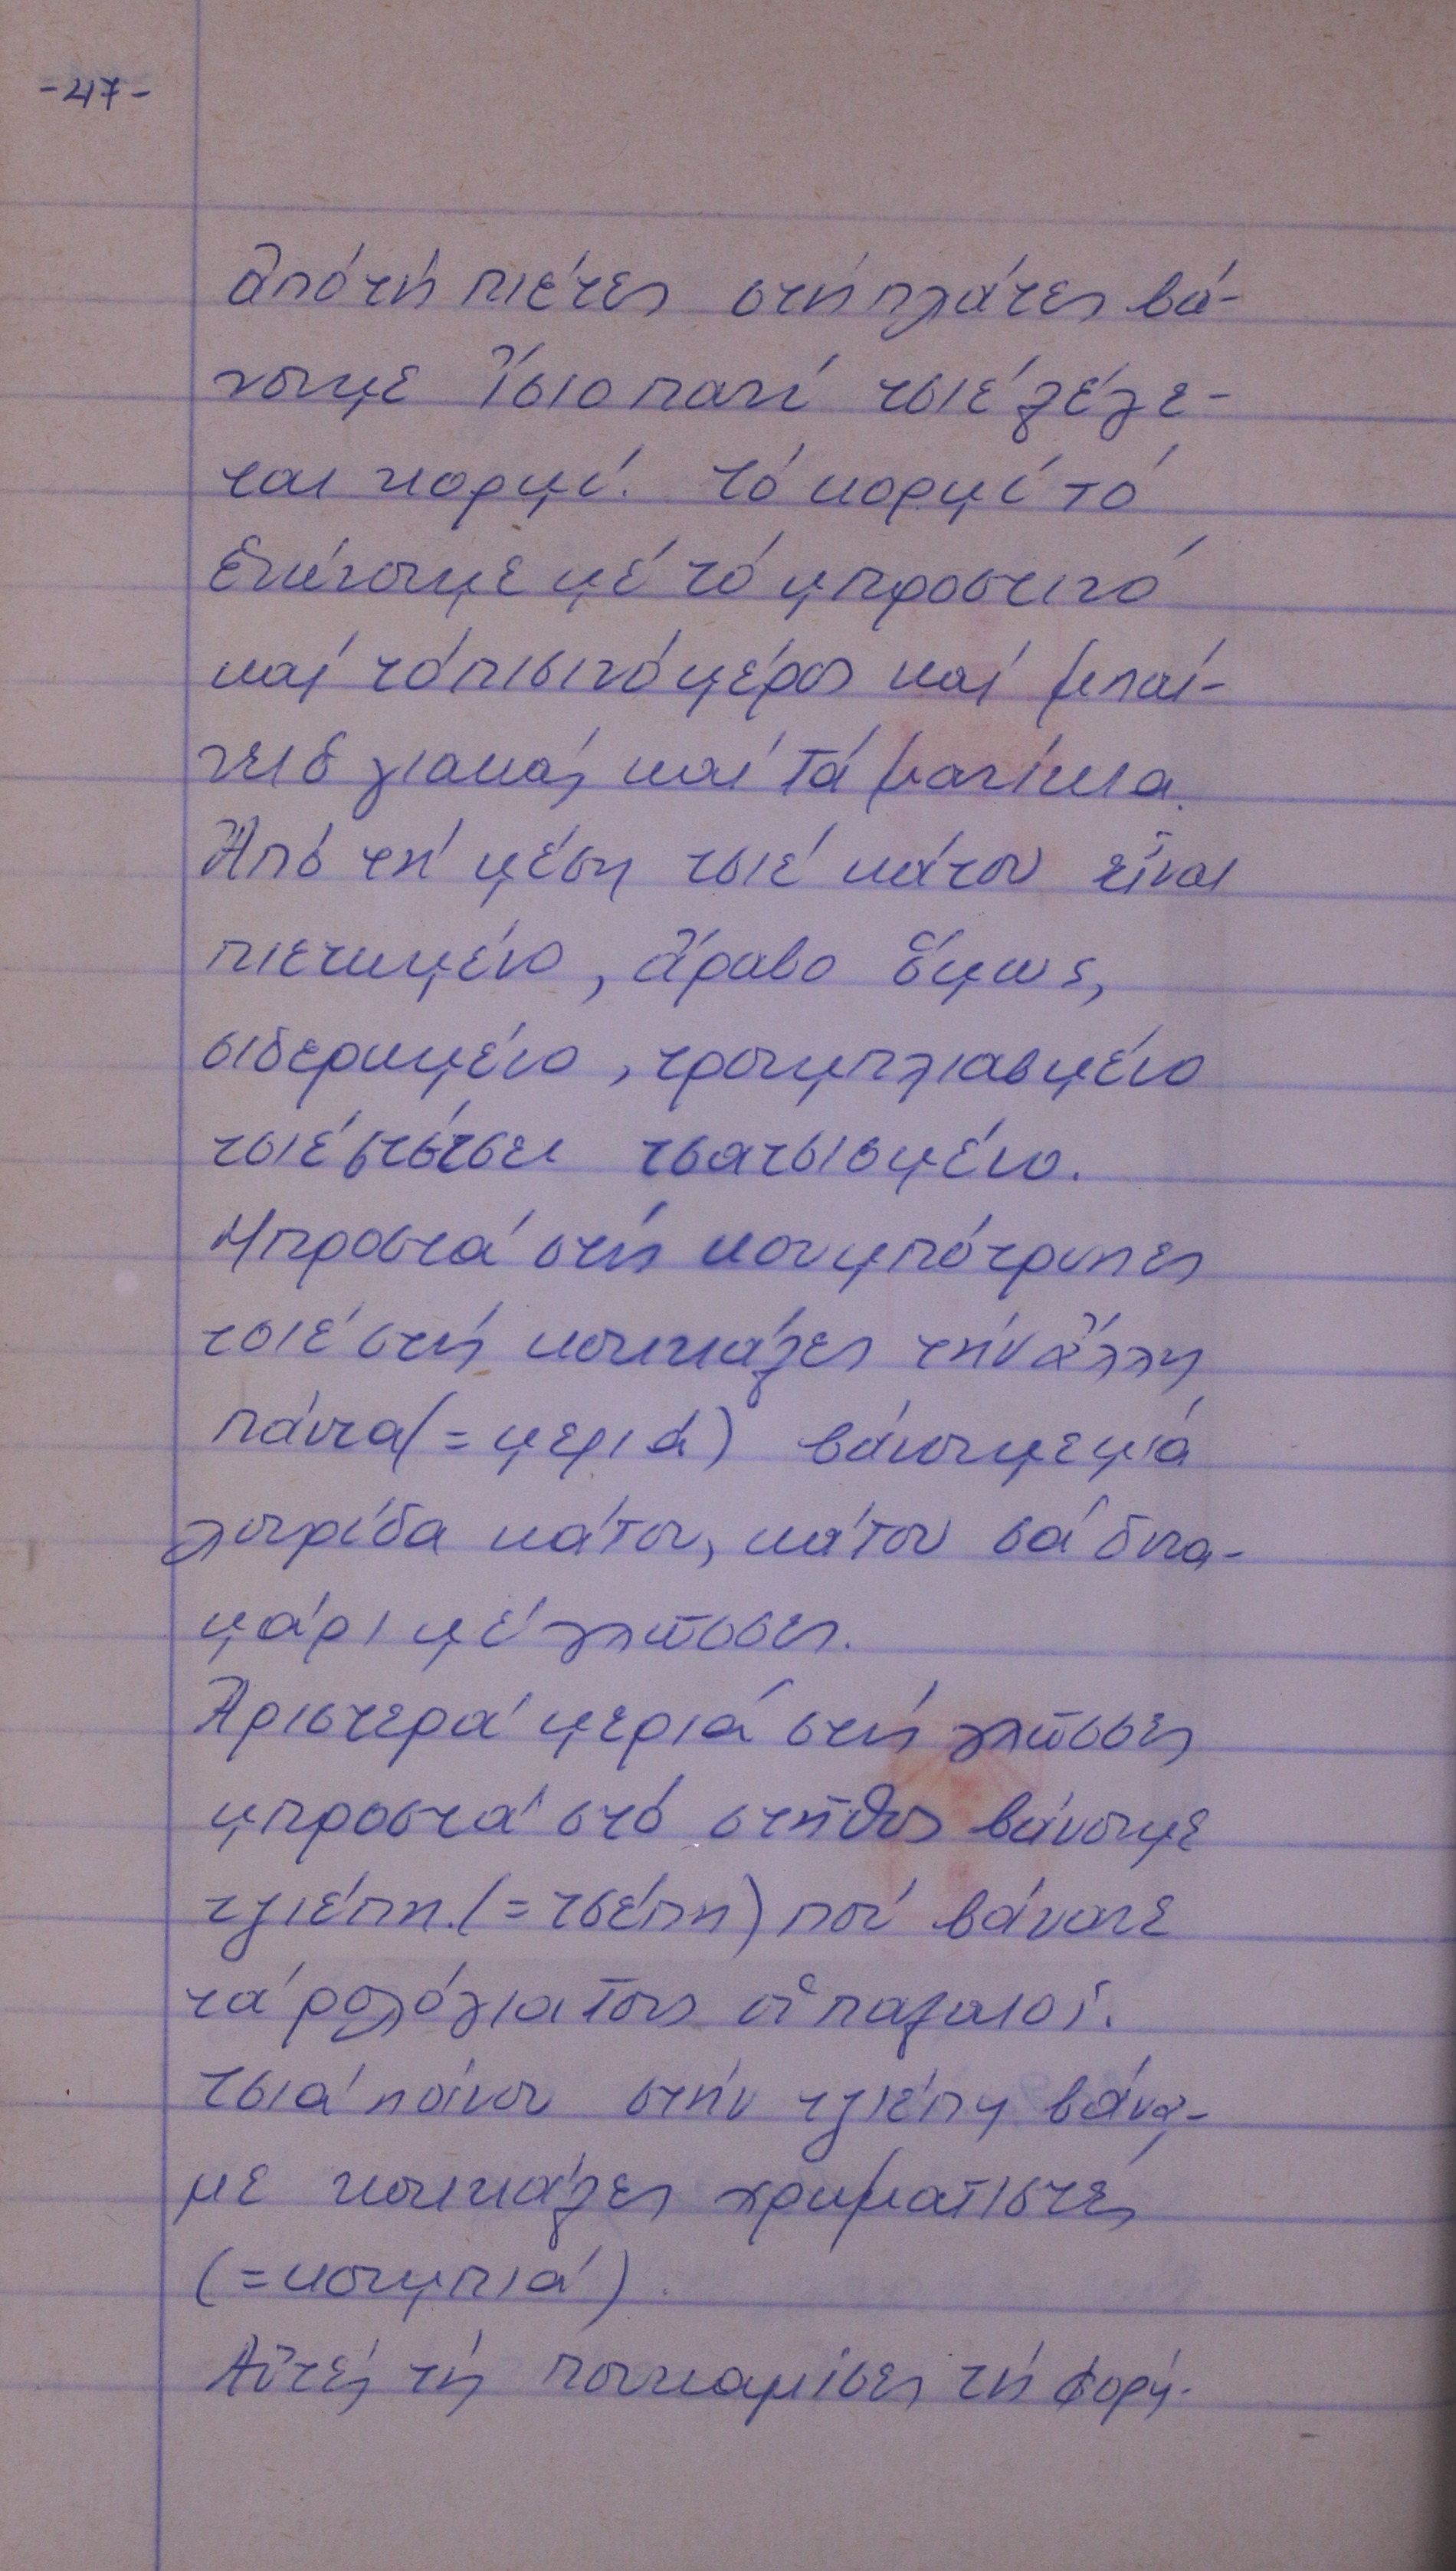 -47-
Ἀπό τή πιέτες στή πλάτες βά-
νουμε ἴσιο πανί τσιέ λέγε-
ται κορμί. Τό κορμί τό
ἑνώνουμε μέ τό μπροστινό
καί τό πισινό μέρος καί μπαί-
νει ὁ γιακάς καί τά μανίκια.
Ἀπό τή μέση τσιέ κάτου εἶναι
πιετωμένο, ἄραβο ὅμως,
σιδερωμένο, τρουμπλιασμένο
τσιέ τσατσισμένο.
Μπροστά στίς κουμπότρυπες
τσιέ στή κουκιάλες τήν ἄλλη
πάντα (=μεριά) βάνουμε μιά
λουρίδα κάτου, κάτου σά δια-
μάρι μέ γλῶσσες.
Ἀριστερά μεριά στή γλῶσσες
μπροστά στό στῆθος βάνουμε
τζιέπη (=τσέπη) πού βάνανε
τά ρολόγια τους οἱ παλαιοί.
Τσιά πάνου στήν τζιέπη βάνα-
με κουκιάλες χρωματιστές
(=κουμπιά).
Αὐτές τή πουκαμίσες τή φορή-